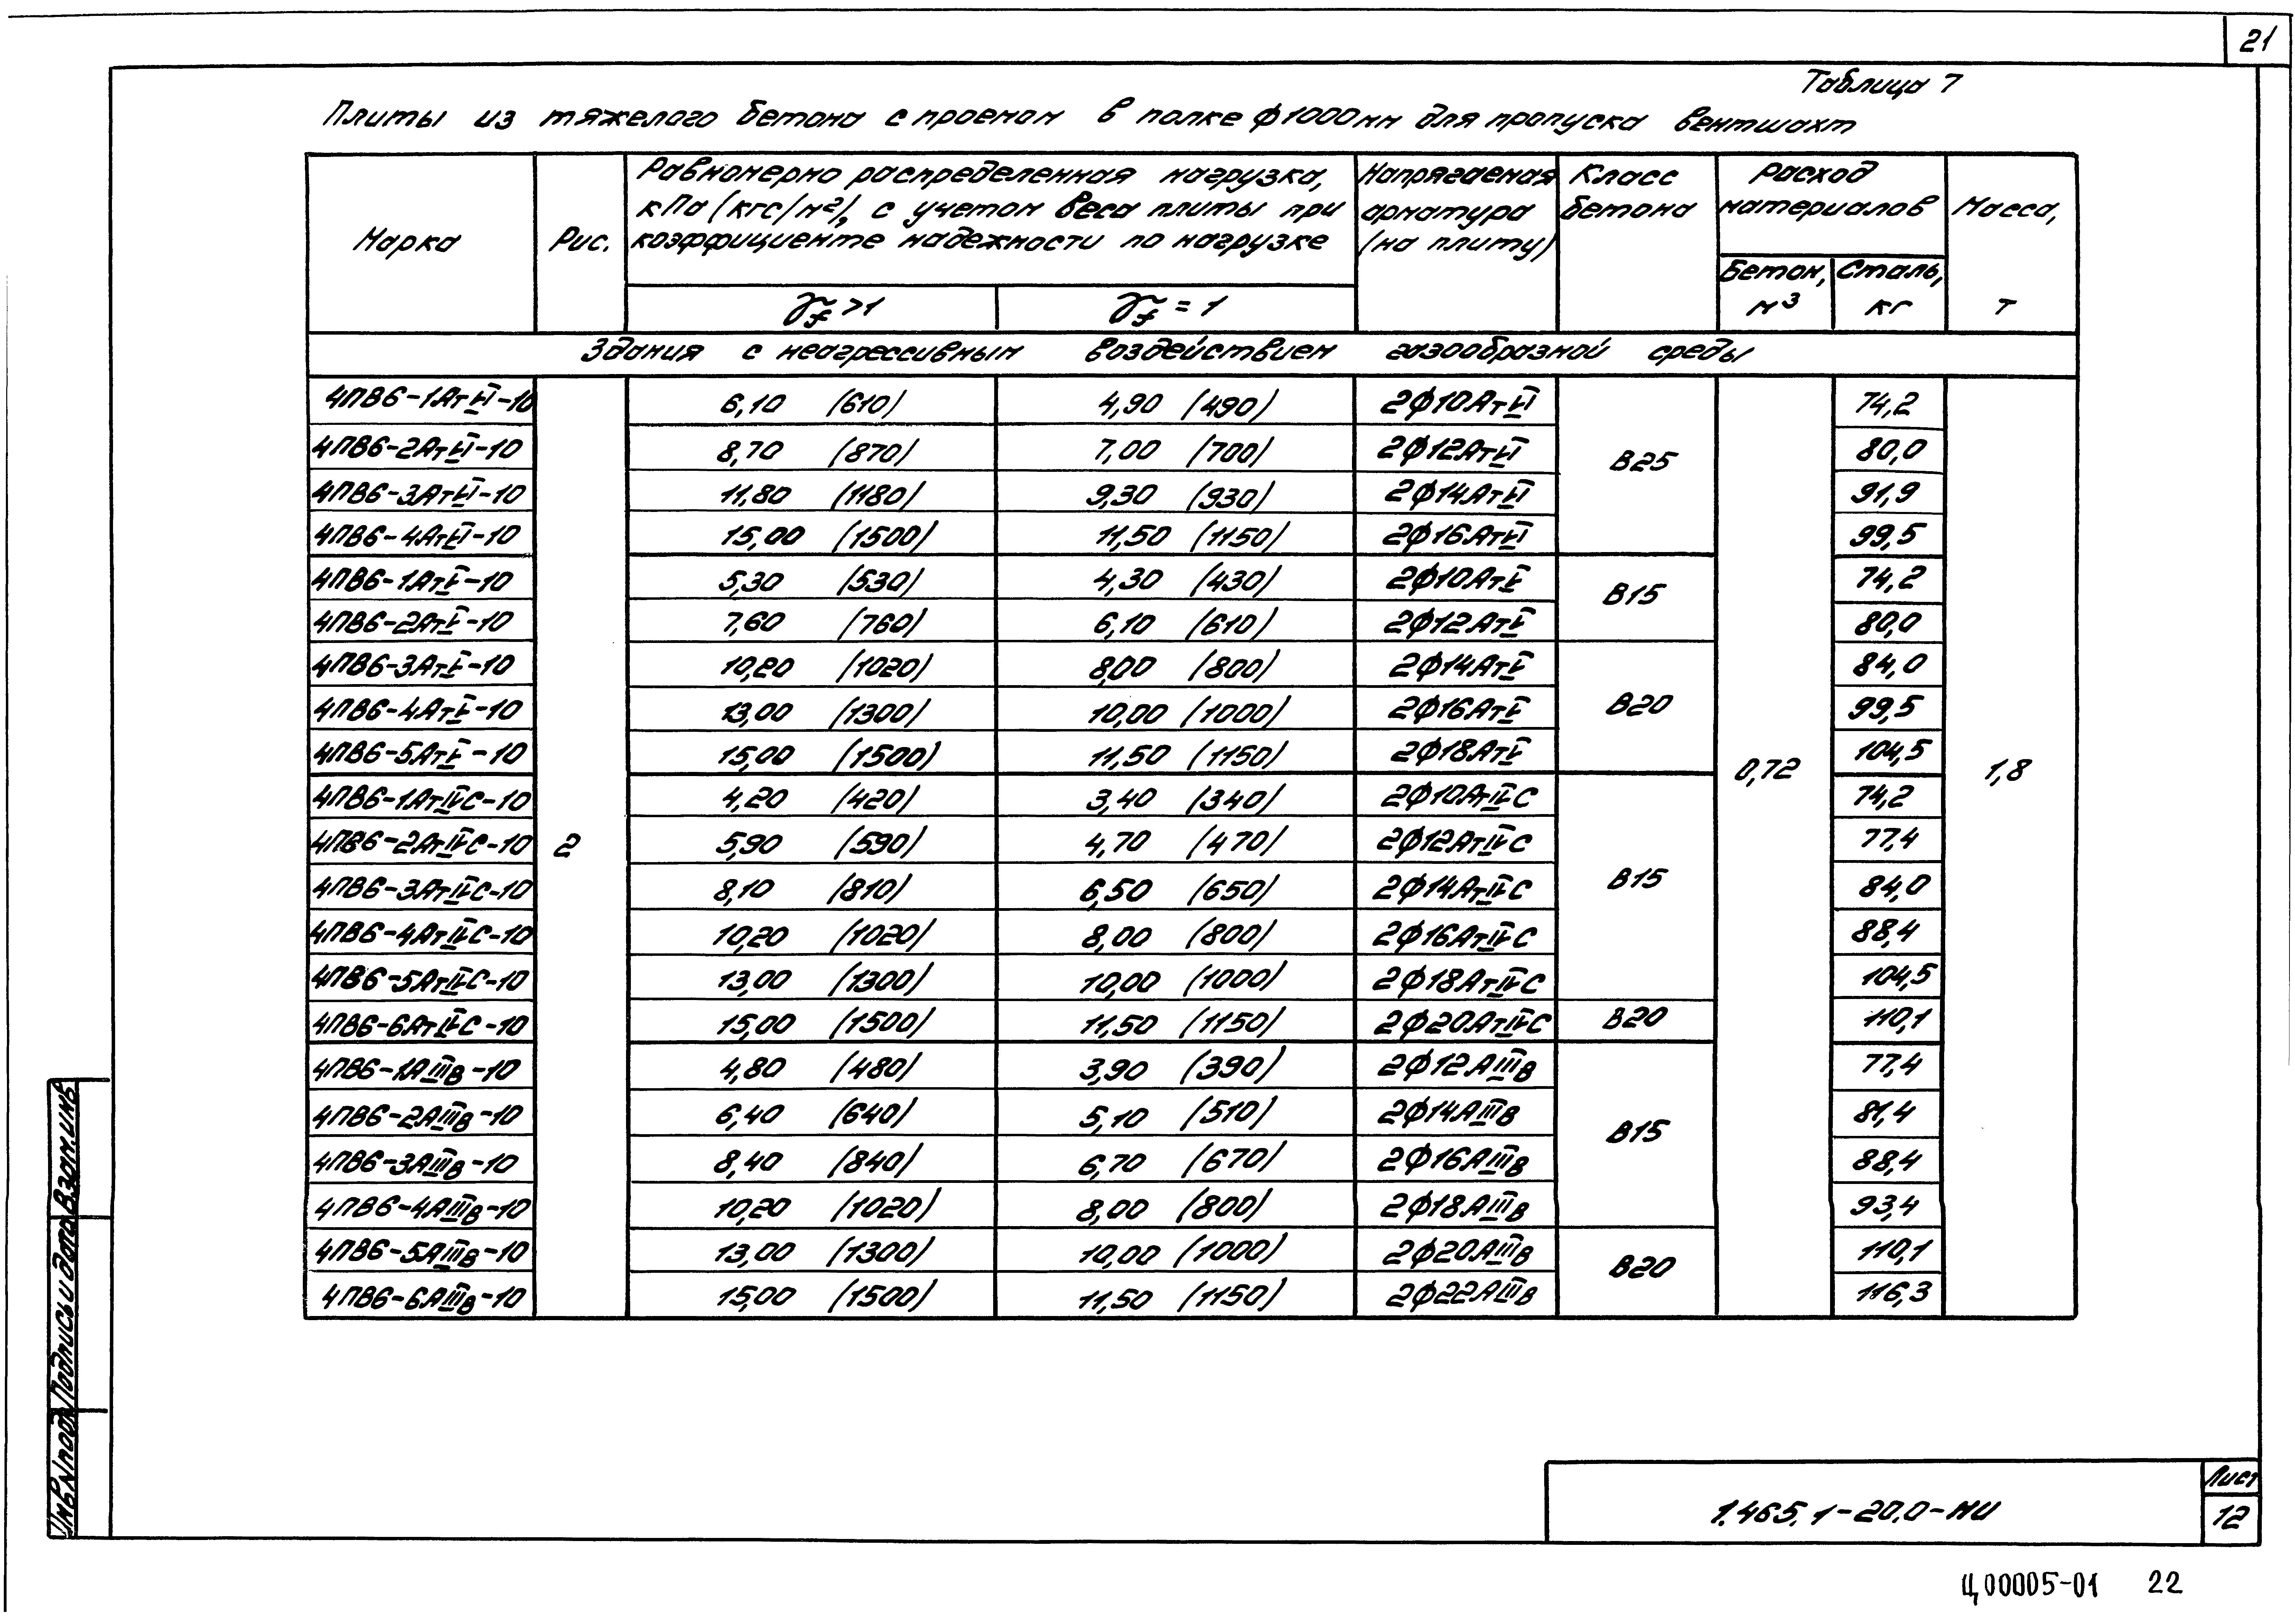 21
Таблица 7
Плиты из тяжелого бетона с проемом в полке ф1000мм для пропуска вентшахт
Марка | Рис. | Равномерно распределенная нагрузка, кПа (кгс/м²), с учетом веса плиты при коэффициенте надежности по нагрузке | Напрягаемая арматура (на плиту) | Класс бетона | Расход материалов | Масса, т
γf >1 | γf = 1 | Бетон, м³ | Сталь, кг
Здания с неагрессивным воздействием газообразной среды
4ПВ6-1АтVI-10 | 6,10 (610) | 4,90 (490) | 2ф10АтVI | 74,2
4ПВ6-2АтVI-10 | 8,70 (870) | 7,00 (700) | 2ф12АтVI | В25 | 80,0
4ПВ6-3АтVI-10 | 11,80 (1180) | 9,30 (930) | 2ф14АтVI | 91,9
4ПВ6-4АтVI-10 | 15,00 (1500) | 11,50 (1150) | 2ф16АтVI | 99,5
4ПВ6-1АтV-10 | 5,30 (530) | 4,30 (430) | 2ф10АтV | В15 | 74,2
4ПВ6-2АтV-10 | 7,60 (760) | 6,10 (610) | 2ф12АтV | 80,0
4ПВ6-3АтV-10 | 10,20 (1020) | 8,00 (800) | 2ф14АтV | 84,0
4ПВ6-4АтV-10 | 13,00 (1300) | 10,00 (1000) | 2ф16АтV | В20 | 99,5
4ПВ6-5АтV-10 | 15,00 (1500) | 11,50 (1150) | 2ф18АтV | 0,72 | 104,5 | 1,8
4ПВ6-1АтIVС-10 | 4,20 (420) | 3,40 (340) | 2ф10АтIVС | 74,2
4ПВ6-2АтIVС-10 | 2 | 5,90 (590) | 4,70 (470) | 2ф12АтIVС | 77,4
4ПВ6-3АтIVС-10 | 8,10 (810) | 6,50 (650) | 2ф14АтIVС | В15 | 84,0
4ПВ6-4АтIVС-10 | 10,20 (1020) | 8,00 (800) | 2ф16АтIVС | 88,4
4ПВ6-5АтIVС-10 | 13,00 (1300) | 10,00 (1000) | 2ф18АтIVС | 104,5
4ПВ6-6АтIVС-10 | 15,00 (1500) | 11,50 (1150) | 2ф20АтIVС | В20 | 110,1
4ПВ6-1АIIIв-10 | 4,80 (480) | 3,90 (390) | 2ф12АIIIв | 77,4
4ПВ6-2АIIIв-10 | 6,40 (640) | 5,10 (510) | 2ф14АIIIв | В15 | 81,4
4ПВ6-3АIIIв-10 | 8,40 (840) | 6,70 (670) | 2ф16АIIIв | 88,4
4ПВ6-4АIIIв-10 | 10,20 (1020) | 8,00 (800) | 2ф18АIIIв | 93,4
4ПВ6-5АIIIв-10 | 13,00 (1300) | 10,00 (1000) | 2ф20АIIIв | В20 | 110,1
4ПВ6-6АIIIв-10 | 15,00 (1500) | 11,50 (1150) | 2ф22АIIIв | 116,3
Инв.Nподл. Подпись и дата Взам.инв
1.465.1-20.0-НИ
Лист
12
Ц00005-01 22